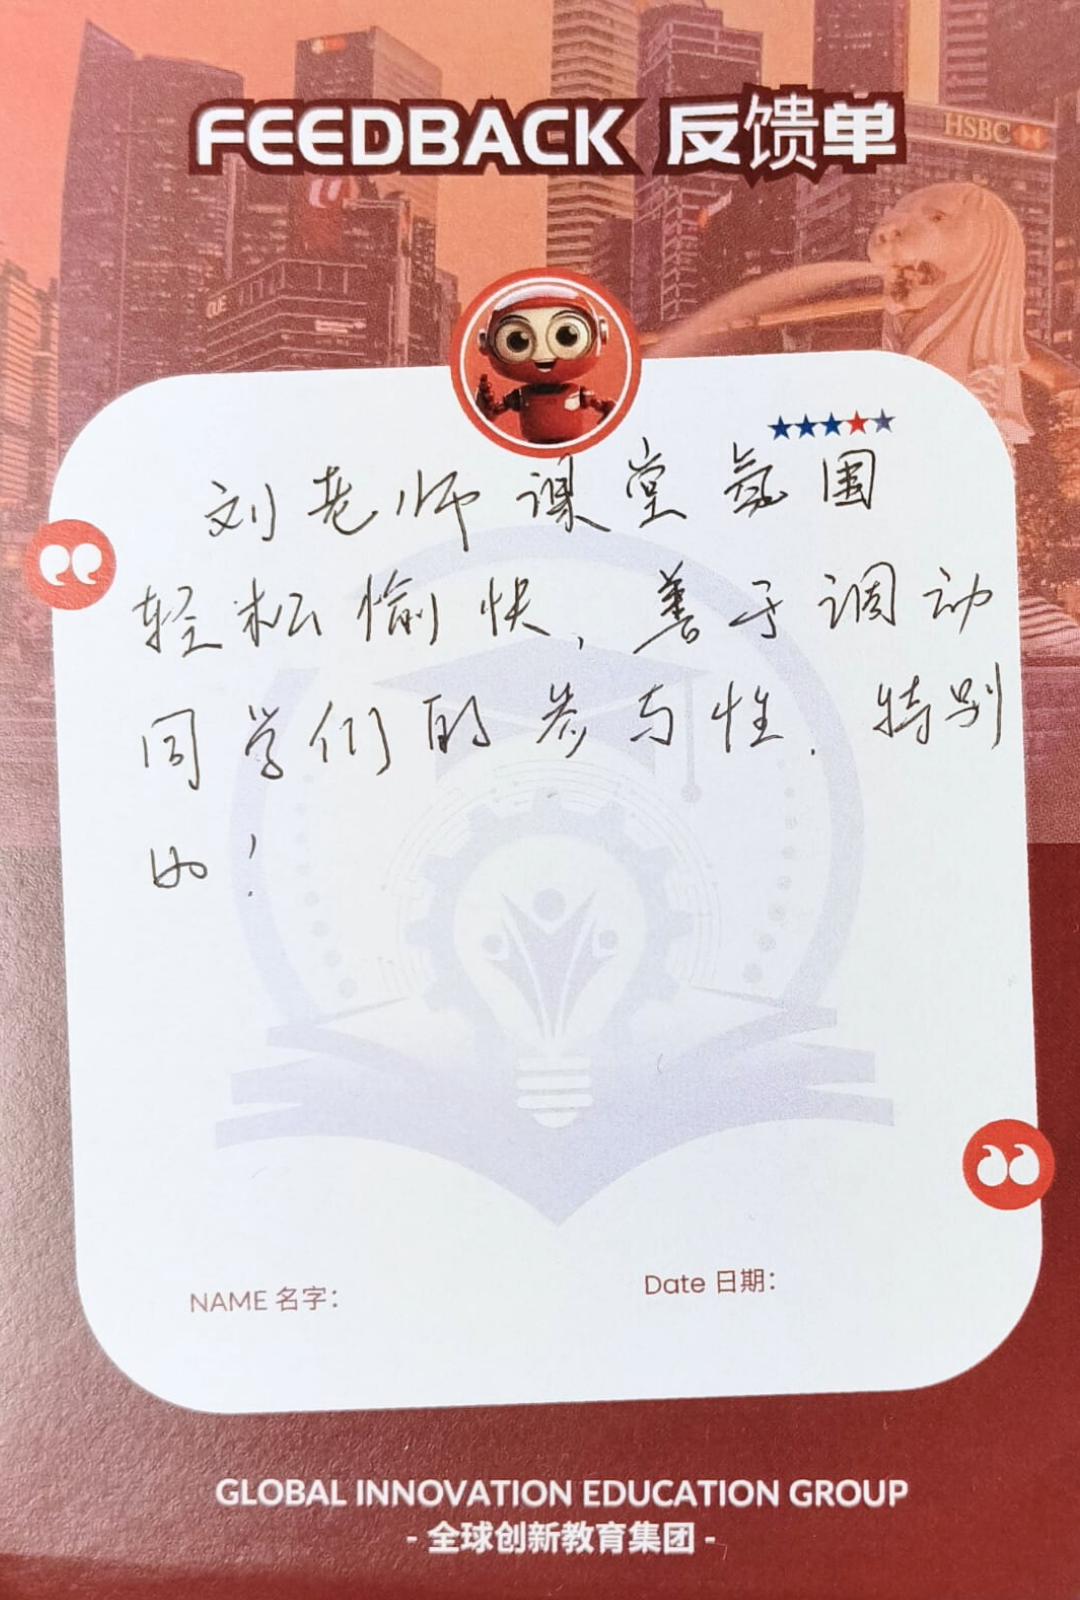 FEEDBACK 反馈单
HSBC
OUE
刘老师课堂氛围
轻松愉快,善于调动
同学们的参与性.特别
的!
NAME 名字:
Date 日期:
GLOBAL INNOVATION EDUCATION GROUP
- 全球创新教育集团 -